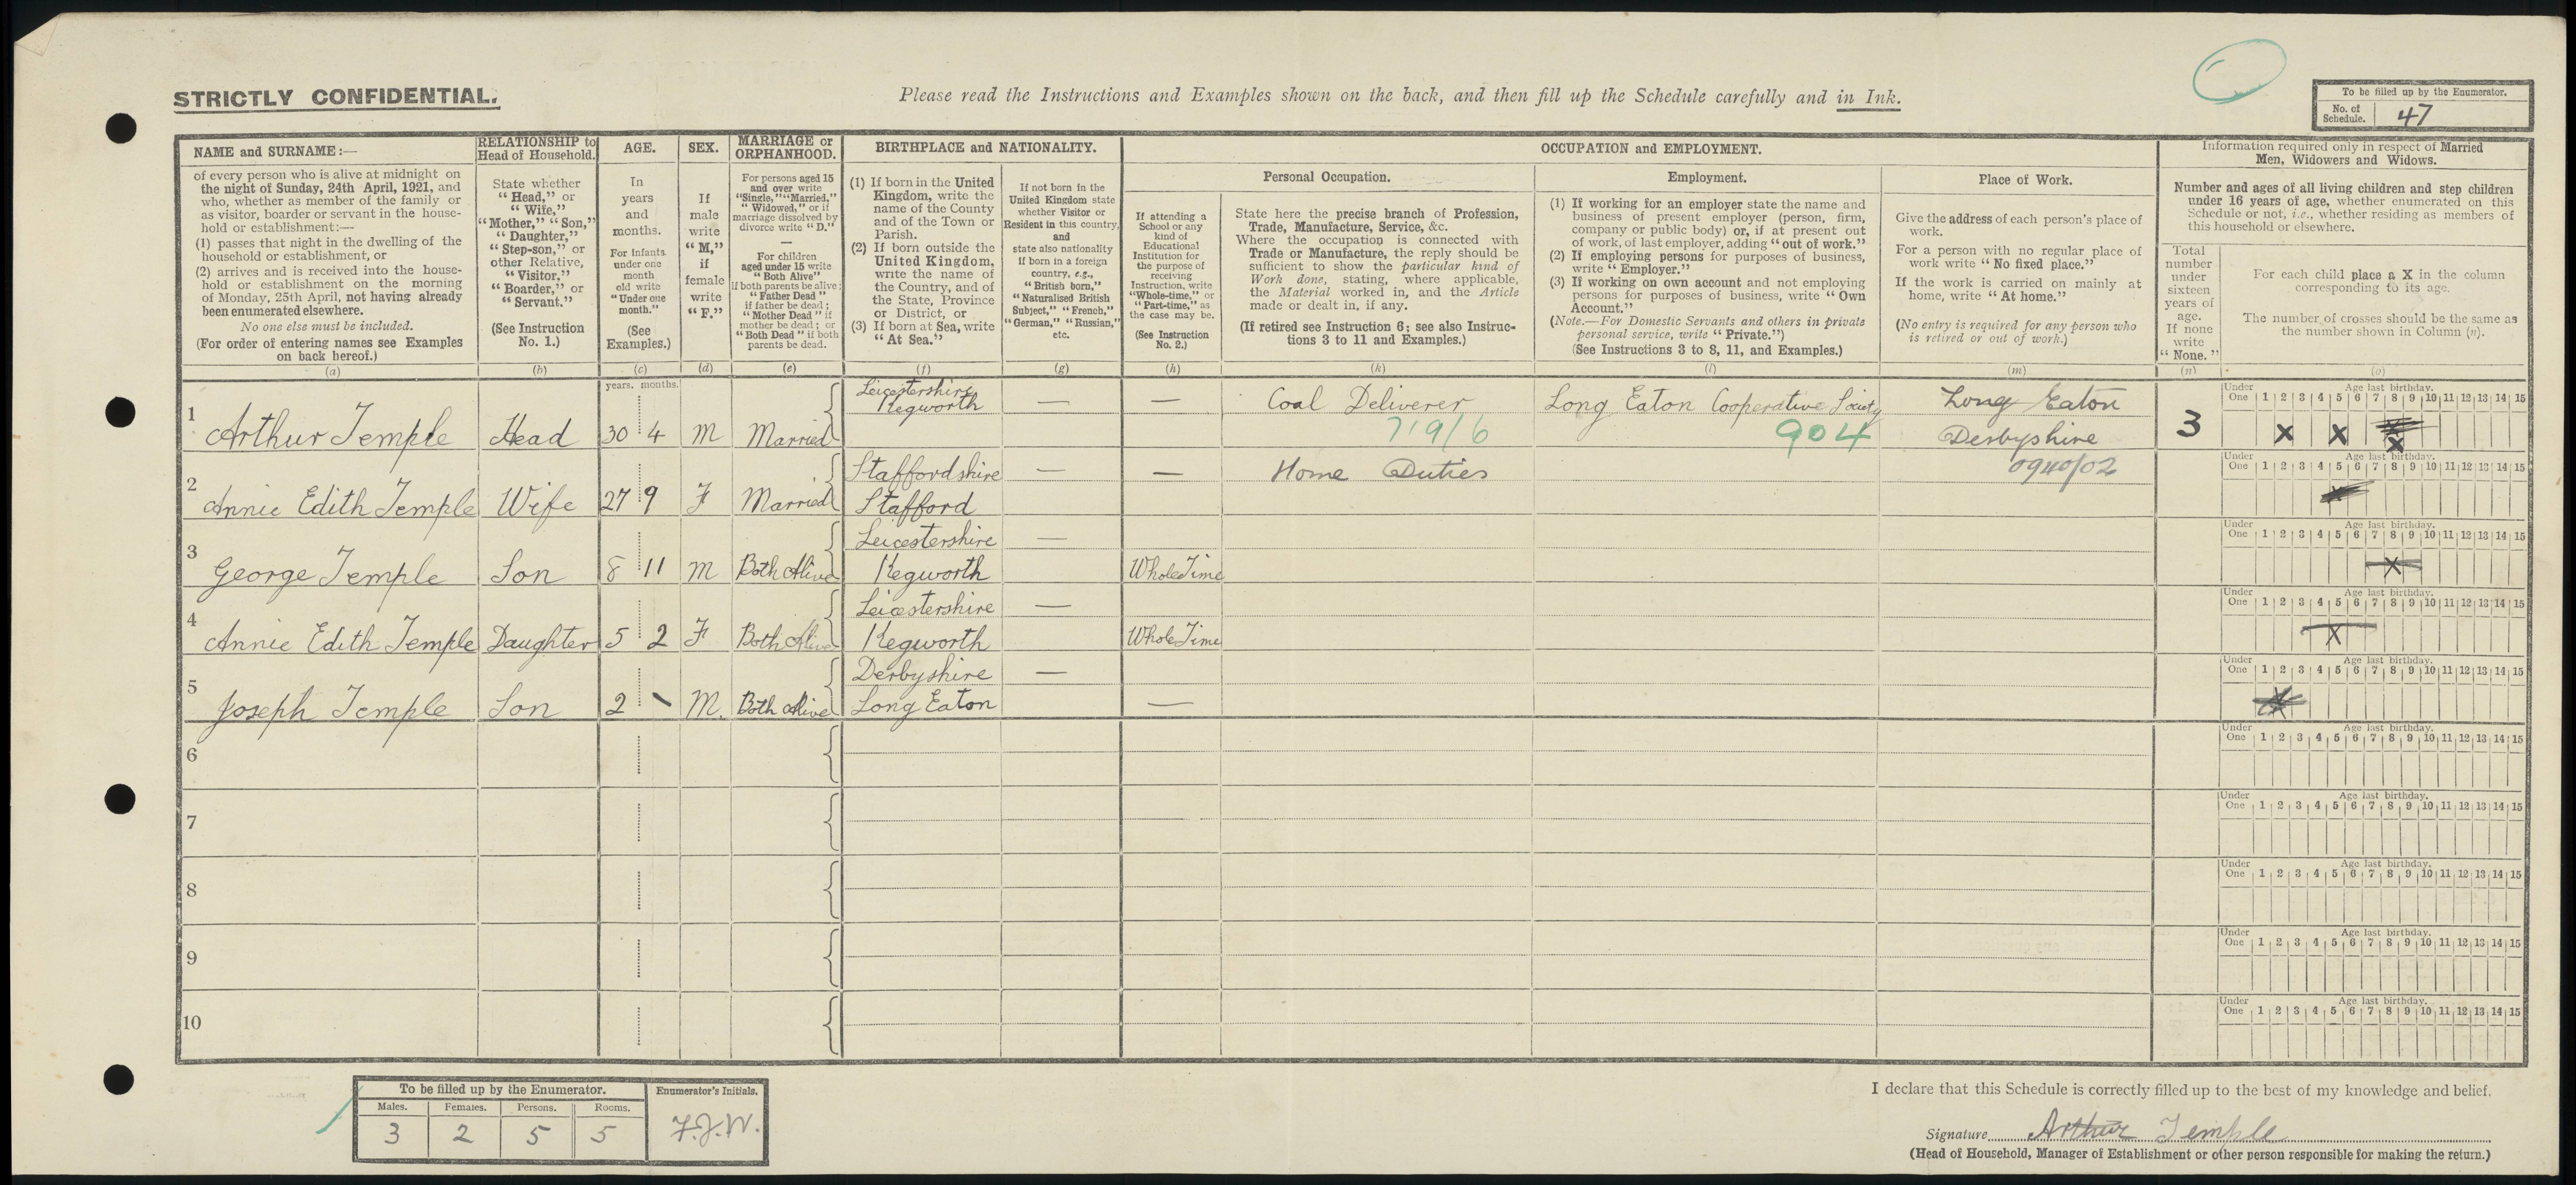 STRICTLY CONFIDENTIAL.
Please read the Instructions and Examples shown on the back, and then fill up the Schedule carefully and in Ink.
To be filled up by the Enumerator.
No. of Schedule. 47
NAME and SURNAME:—
of every person who is alive at midnight on
the night of Sunday, 24th April, 1921, and
who, whether as member of the family or
as visitor, boarder or servant in the house-
hold or establishment:—
(1) passes that night in the dwelling of the
household or establishment, or
(2) arrives and is received into the house-
hold or establishment on the morning
of Monday, 25th April, not having already
been enumerated elsewhere.
No one else must be included.
(For order of entering names see Examples
on back hereof.)
(a)
RELATIONSHIP to
Head of Household.
State whether
"Head," or
"Wife,"
"Mother," "Son,"
"Daughter,"
"Step-son," or
other Relative,
"Visitor,"
"Boarder," or
"Servant."
(See Instruction
No. 1.)
(b)
AGE.
In
years
and
months.
For infants
under one
month
old write
"Under one
month."
(See
Examples.)
(c)
SEX.
If
male
write
"M,"
if
female
write
"F."
(d)
MARRIAGE or
ORPHANHOOD.
For persons aged 15
and over write
"Single," "Married,"
"Widowed," or if
marriage dissolved by
divorce write "D."
—
For children
aged under 15 write
"Both Alive"
if both parents be alive;
"Father Dead"
if father be dead;
"Mother Dead" if
mother be dead; or
"Both Dead" if both
parents be dead.
(e)
BIRTHPLACE and NATIONALITY.
(1) If born in the United
Kingdom, write the
name of the County
and of the Town or
Parish.
(2) If born outside the
United Kingdom,
write the name of
the Country, and of
the State, Province
or District, or
(3) If born at Sea, write
"At Sea."
(f)
If not born in the
United Kingdom state
whether Visitor or
Resident in this country,
and
state also nationality
if born in a foreign
country, e.g.,
"British born,"
"Naturalised British
Subject," "French,"
"German," "Russian,"
etc.
(g)
OCCUPATION and EMPLOYMENT.
If attending a
School or any
kind of
Educational
Institution for
the purpose of
receiving
Instruction, write
"Whole-time," or
"Part-time," as
the case may be.
(See Instruction
No. 2.)
(h)
Personal Occupation.
State here the precise branch of Profession,
Trade, Manufacture, Service, &c.
Where the occupation is connected with
Trade or Manufacture, the reply should be
sufficient to show the particular kind of
Work done, stating, where applicable,
the Material worked in, and the Article
made or dealt in, if any.
(If retired see Instruction 6; see also Instruc-
tions 3 to 11 and Examples.)
(k)
Employment.
(1) If working for an employer state the name and
business of present employer (person, firm,
company or public body) or, if at present out
of work, of last employer, adding "out of work."
(2) If employing persons for purposes of business,
write "Employer."
(3) If working on own account and not employing
persons for purposes of business, write "Own
Account."
(Note.—For Domestic Servants and others in private
personal service, write "Private.")
(See Instructions 3 to 8, 11, and Examples.)
(l)
Place of Work.
Give the address of each person's place of
work.
For a person with no regular place of
work write "No fixed place."
If the work is carried on mainly at
home, write "At home."
(No entry is required for any person who
is retired or out of work.)
(m)
Information required only in respect of Married
Men, Widowers and Widows.
Number and ages of all living children and step children
under 16 years of age, whether enumerated on this
Schedule or not, i.e., whether residing as members of
this household or elsewhere.
Total
number
under
sixteen
years of
age.
If none
write
"None."
(n)
For each child place a X in the column
corresponding to its age.
The number of crosses should be the same as
the number shown in Column (n).
(o)
years. months.
Leicestershire
1 Arthur Temple Head 30 4 M Married Kegworth — — Coal Deliverer Long Eaton Cooperative Society Long Eaton Derbyshire 3
719/6 904
Under One Age last birthday. 1 2 3 4 5 6 7 8 9 10 11 12 13 14 15
X X X
2 Annie Edith Temple Wife 27 9 F Married Staffordshire Stafford — — Home Duties 0940/02
Under One Age last birthday. 1 2 3 4 5 6 7 8 9 10 11 12 13 14 15
3 George Temple Son 8 11 M Both Alive Leicestershire Kegworth — Whole Time
Under One Age last birthday. 1 2 3 4 5 6 7 8 9 10 11 12 13 14 15
X
4 Annie Edith Temple Daughter 5 2 F Both Alive Leicestershire Kegworth — Whole Time
Under One Age last birthday. 1 2 3 4 5 6 7 8 9 10 11 12 13 14 15
X
5 Joseph Temple Son 2 \ M. Both Alive Derbyshire Long Eaton — —
Under One Age last birthday. 1 2 3 4 5 6 7 8 9 10 11 12 13 14 15
6
Under One Age last birthday. 1 2 3 4 5 6 7 8 9 10 11 12 13 14 15
7
Under One Age last birthday. 1 2 3 4 5 6 7 8 9 10 11 12 13 14 15
8
Under One Age last birthday. 1 2 3 4 5 6 7 8 9 10 11 12 13 14 15
9
Under One Age last birthday. 1 2 3 4 5 6 7 8 9 10 11 12 13 14 15
10
Under One Age last birthday. 1 2 3 4 5 6 7 8 9 10 11 12 13 14 15
To be filled up by the Enumerator.
Males. Females. Persons. Rooms.
3 2 5 5
Enumerator's Initials.
F.J.W.
I declare that this Schedule is correctly filled up to the best of my knowledge and belief.
Signature Arthur Temple
(Head of Household, Manager of Establishment or other person responsible for making the return.)